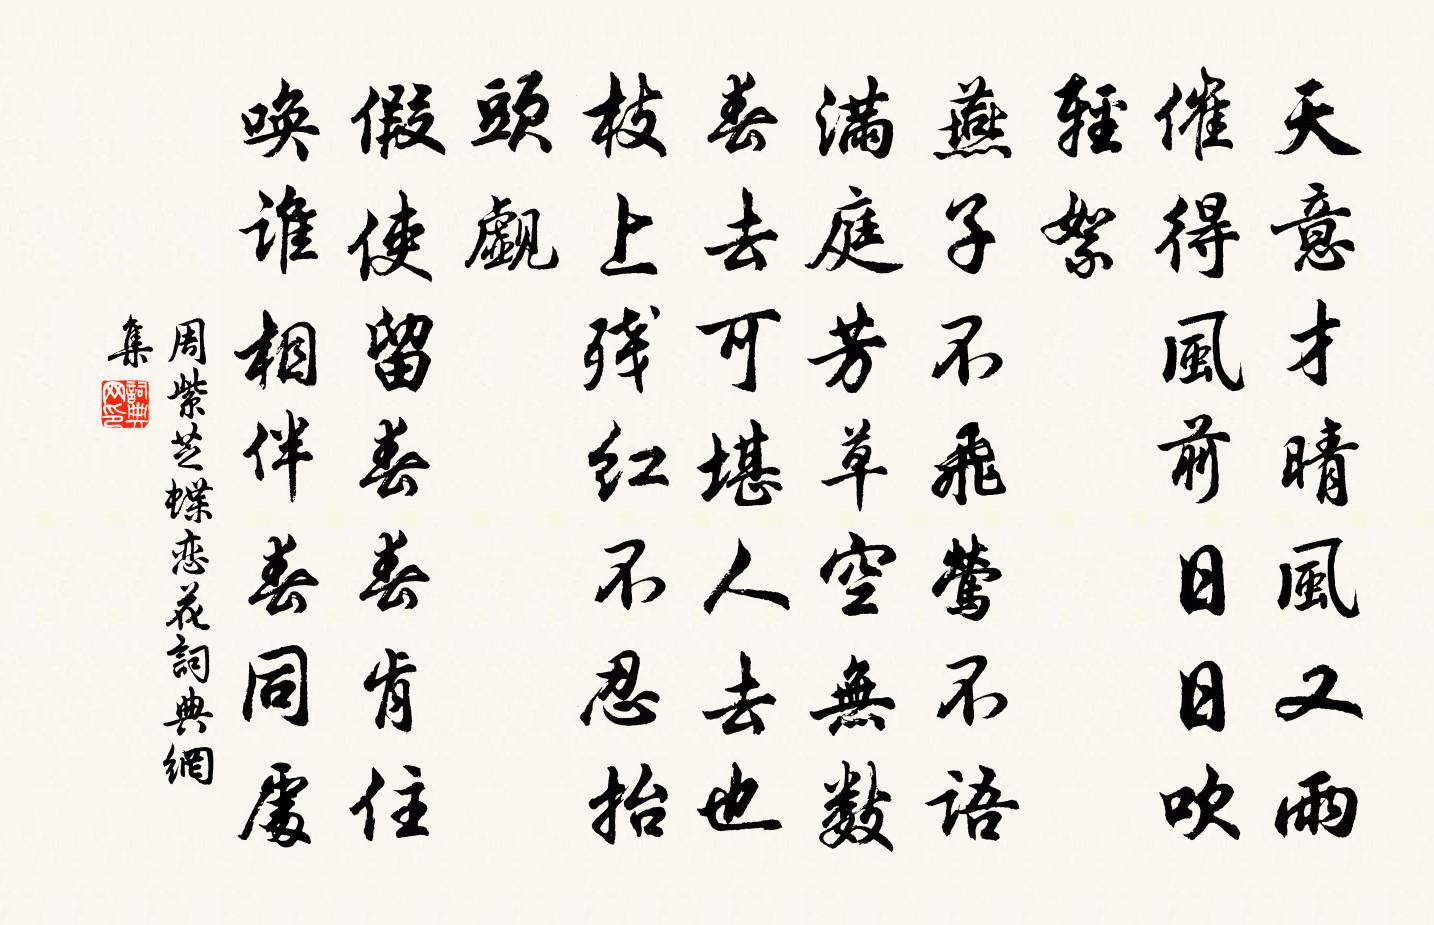 天意才晴風又雨
催得風前日日吹
輕絮
燕子不飛鶯不語
滿庭芳草空無數
春去可堪人去也
枝上残红不忍抬
頭覷
假使留春春肯住
喚誰相伴春同處
周紫芝蝶恋花詞典網
集
詞典
网印